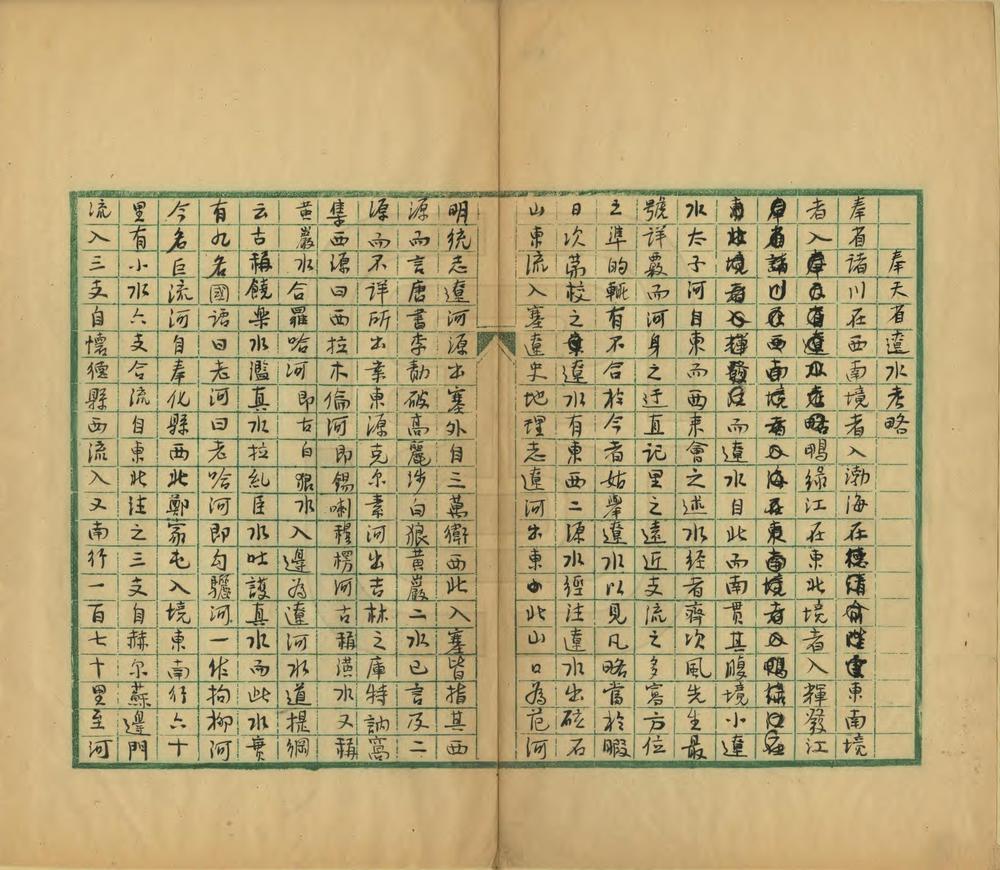 奉天省遼水考略
奉省諸川在西南境者入渤海在東南境
者入鴨綠江在東北境者入輝發江
而遼水自此而南貫其腹境小遼
水太子河自東而西來會之述水經者齊次風先生最
號詳覈而河身之迂直記里之遠近支流之多寡方位
之準的輒有不合於今者姑舉遼水以見凡略舊於暇
日次第校之遼水有東西二源水經注遼水出砥石
山東流入塞遼史地理志遼河出東北山口為范河
明統志遼河源出塞外自三萬衛西北入塞皆指其西
源而言唐書李勣破高麗涉白狼黃巖二水已言及二
源而不詳所出案東源克尔素河出吉林之庫特訥窩
集西源曰西拉木倫河即錫喇穆楞河古稱潢水又稱
黃巖水合羅哈河即古白狼水入邊為遼河水道提綱
云古稱饒樂水濫真水拉紇臣水吐護真水而此水實
有九名國語曰老河曰老哈河即勾驪河一作枸柳河
今名巨流河自奉化縣西北鄭家屯入境東南行六十
里有小水六支合流自東北注之三支自赫尔蘇邊門
流入三支自懷德縣西流入又南行一百七十里至河